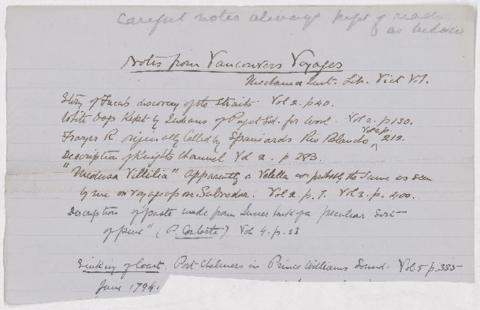 Careful notes always kept & made
as below
Notes from Vancouvers Voyages
Mechanics Inst. Lib. Vict V.I.
Story of Fucas discovery of the Straits Vol 2. p 40.
White Dogs Kept by Indians of Puget Sd. for wool. Vol 2. p 130.
Frazers R originally called by Spaniards Rio Blancho Vol 2 p 212.
Description of Knights Channel Vol 2. p 283.
"Medusa Villilia" Apparently a Velella or probably the same as seen
by me on voyage from Salvador. Vol 2 p. 9. Vol 3. p. 400.
Description of paste made from inner bark of a peculiar sort
of pine" (P. Contorta) Vol 4. p. 23
Sinking of Coast. Port Chalmers in Prince Williams Sound. Vol. 5 p. 335
June 1794.